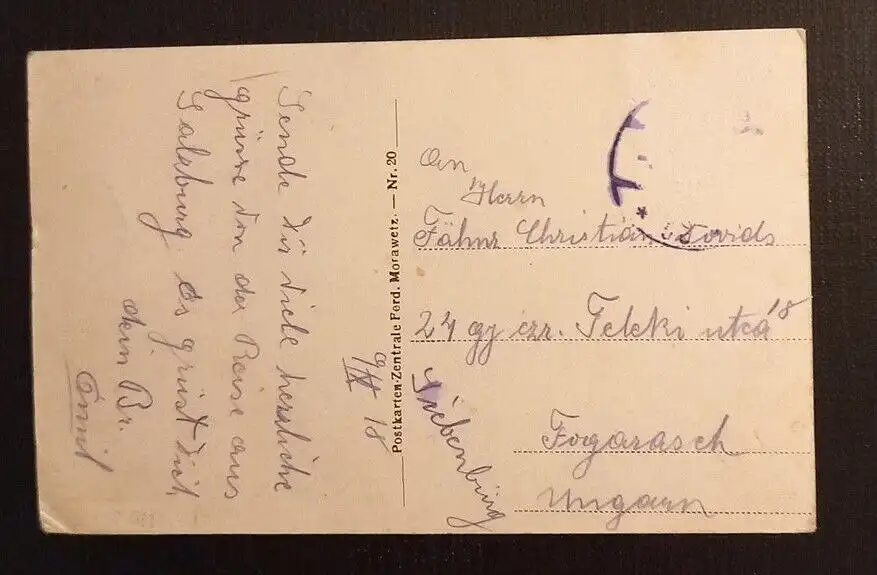 Sende dir viele herzliche
grüsse von der Reise aus
Salzburg. es grüst dich
dein Br.
Emil
9/IV 18
Postkarten-Zentrale Ferd. Morawetz. — Nr. 20
An
Herrn
Fähnr Christian
24 gy ezr. Teleki utca 18
Fogarasch
Ungarn
Siebenbürg